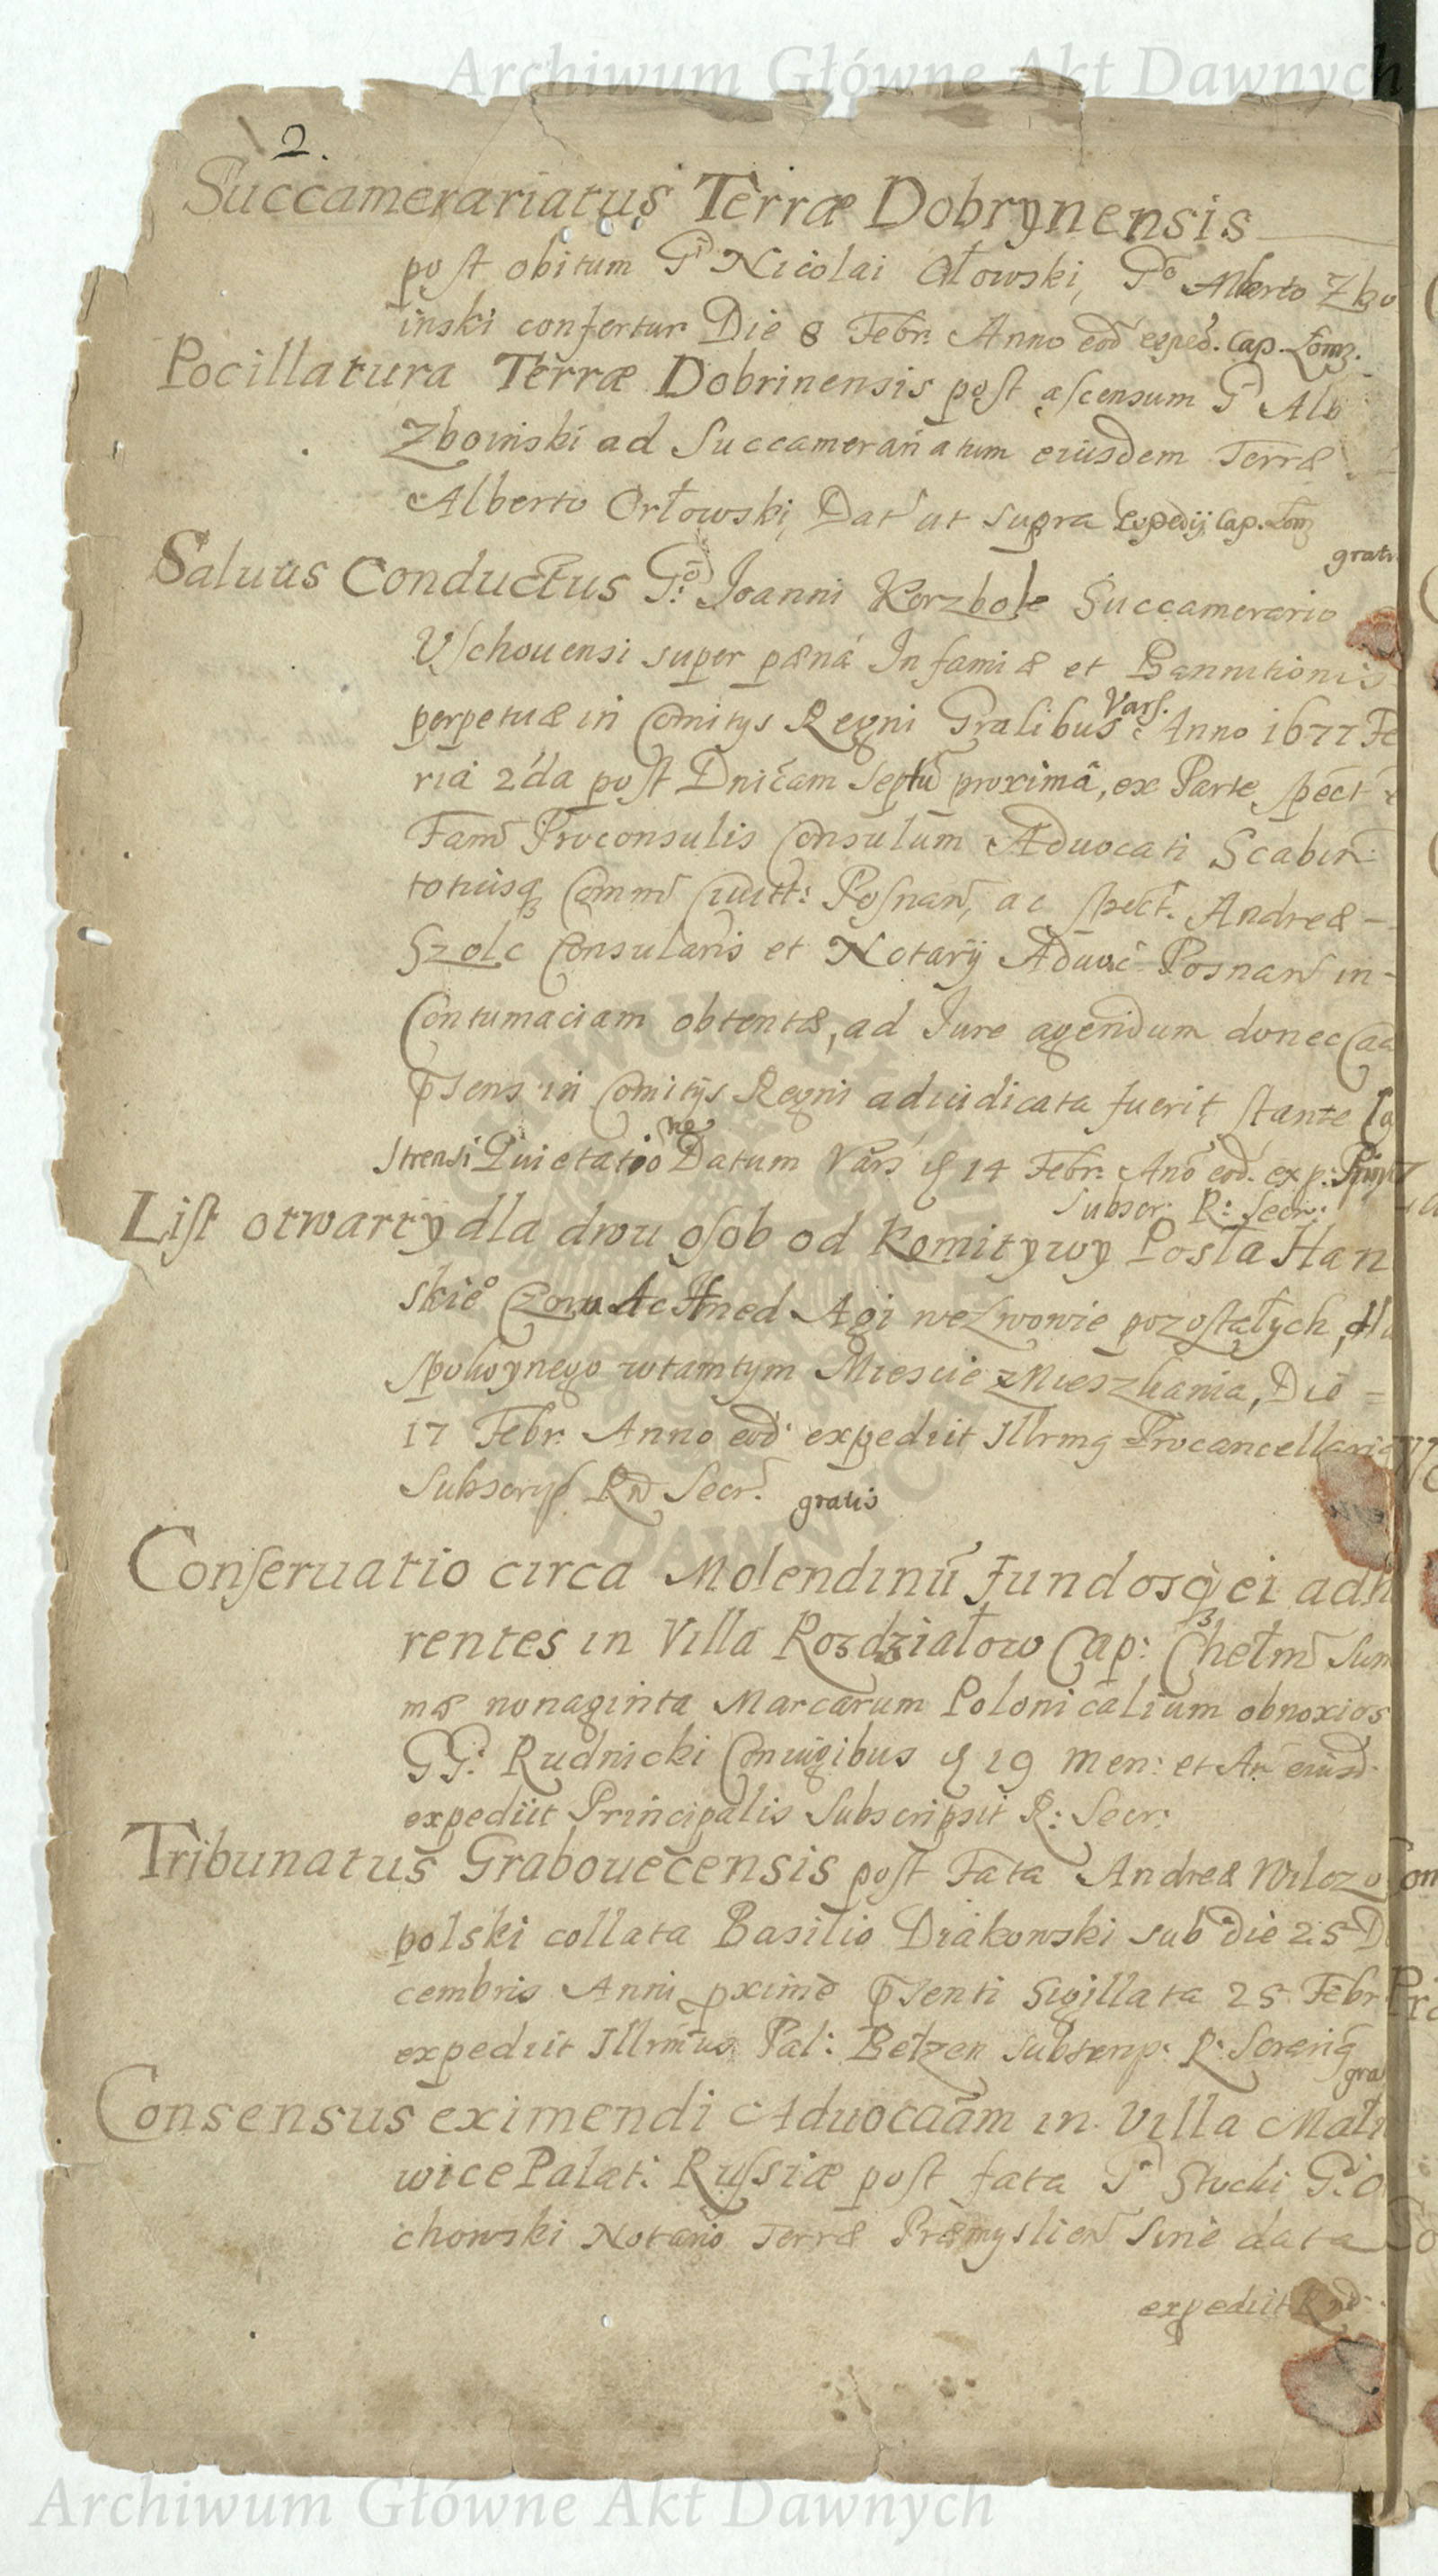 Archiwum Główne Akt Dawnych
2.
Succamerariatus Terræ Dobrynensis
post obitum Gi Nicolai Orłowski, Go Alberto Zbo
inski confertur Die 8 Febr. Anno eod exped. Cap. Łomz.
Pocillatura Terræ Dobrinensis post ascensum G Alb
Zboinski ad Succamerariatum eiusdem Terræ
Alberto Orłowski, Dat ut supra Expedij Cap. Łom
gratis
Saluus Conductus Go: Joanni Korzbok Succamerario
Vschouensi super pæná Infamiæ et Bannitionis
perpetuæ in Comitys Regni Gralibus Vars. Anno 1677 Fe
ria 2da post Dnicam Septu proximâ, ex Parte spect
Fam Proconsulis Consulum Aduocati Scabin
totiusq Comm Ciuitt: Posnan, ac spect. Andreæ
Szolc Consularis et Notarij Aduoc Posnan in
Contumaciam obtentæ, ad Jure agendum donec Caa
psens in Comitijs Regni adiudicata fuerit stante
strensi Quietatione Datum Vars 14 Febr. Ano eod. exp:
Subscr. R: Secr:
List otwarty dla dwu osob od Komitywy Posła Han
skieo Achmed Agi we Lwowie pozostałych, dla
spokoynego w tamtym Miescie zMieszkania, Die
17 Febr. Anno eod expediit Illrmq Procancellariq
Subscryp Rd Secr. gratis
Conseruatio circa Molendinũ fundosq ei adh
rentes in Villa Rozdziałow Cap: Chełm Sum
mæ nonaginta Marcarum Polonicalium obnoxios
GG: Rudnicki Coniugibus 19 Men: et An eiusd
expediit Principalis Subscripsit R: Secr:
Tribunatus Grabouecensis post Fata Andreæ Wilczo
polski collata Basilio Drakowski sub die 25 D
cembris Anni pxime psenti Sigillata 25 Febr
expediit Illrmus Pal: Bełzen subscrip: R:
gra
Consensus eximendi Aduocaam in Villa Mał
wice Palat: Russiæ post fata G Stocki G. O
chowski Notario Terræ Præmyslien Sine data
expediit Rnd
Archiwum Główne Akt Dawnych